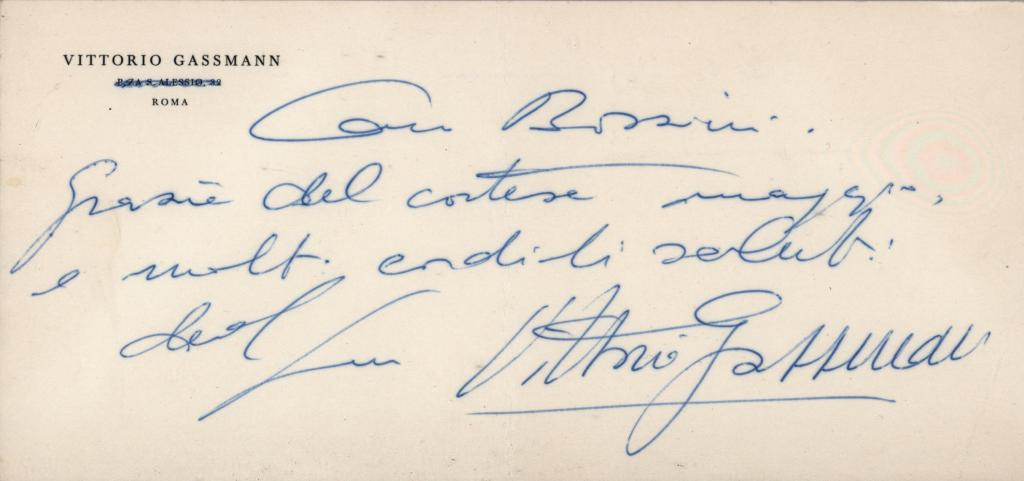 VITTORIO GASSMANN
P.ZA S. ALESSIO, 32
ROMA
Caro Bossini.
Grazie del cortese
e molti cordiali saluti
dal Suo Vittorio Gassman